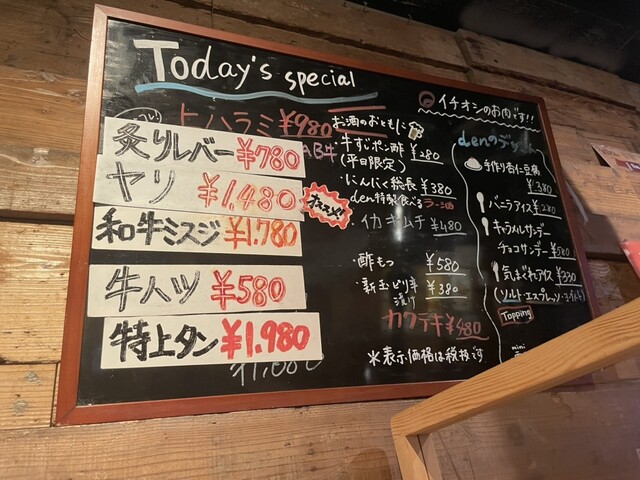 Today's special
イチオシのお肉です!!
上ハラミ ¥980
炙りレバー ¥780
ヤリ ¥1,480
オススメ!
和牛ミスジ ¥1.780
牛ハツ ¥580
特上タン ¥1.980
お酒のおともに
牛すじポン酢 ¥280
(平日限定)
・にんにく総長 ¥380
den特製食べるラー油
・イカキムチ ¥480
・酢もつ ¥580
・新玉ピリ辛漬け ¥380
カクテキ ¥480
※表示価格は税抜です
denのデザート
手作り杏仁豆腐
¥380
バニラアイス ¥280
キャラメルサンデー
チョコサンデー ¥580
気まぐれアイス ¥330
(ソルト・エスプレッソ・
Topping
mini